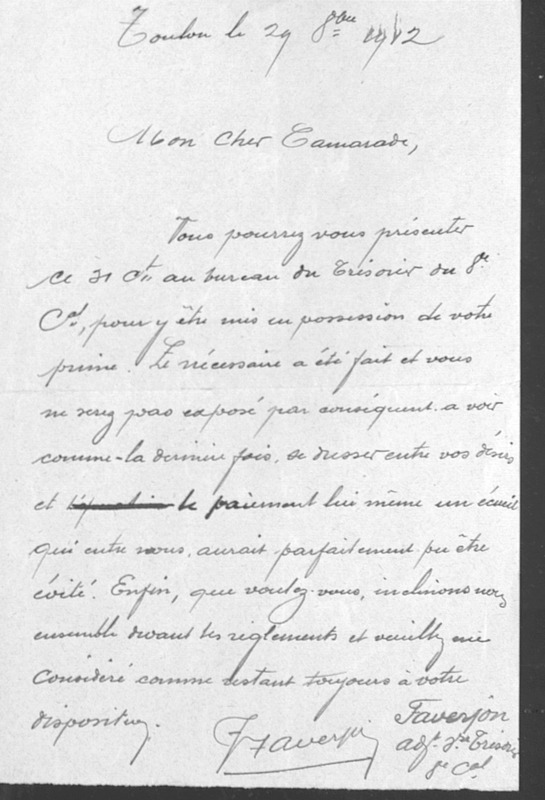 Toulon le 29 8bre 1912
Mon Cher Camarade,
Vous pourrez vous présenter
le 31 Ct au bureau du Trésorier du 8e
Cal, pour y être mis en possession de votre
prime. Le nécessaire a été fait et vous
ne serez pas exposé par conséquent a voir
comme la dernière fois, se dresser entre vos désirs
et le paiement lui même un écueil
qui entre nous, aurait parfaitement pu être
évité. Enfin, que voulez-vous, inclinons nous
ensemble devant les règlements et veuillez me
Considéré comme restant toujours à votre
disposition.
Faverjon
Faverjon
adjt Trésorier
8e Cal